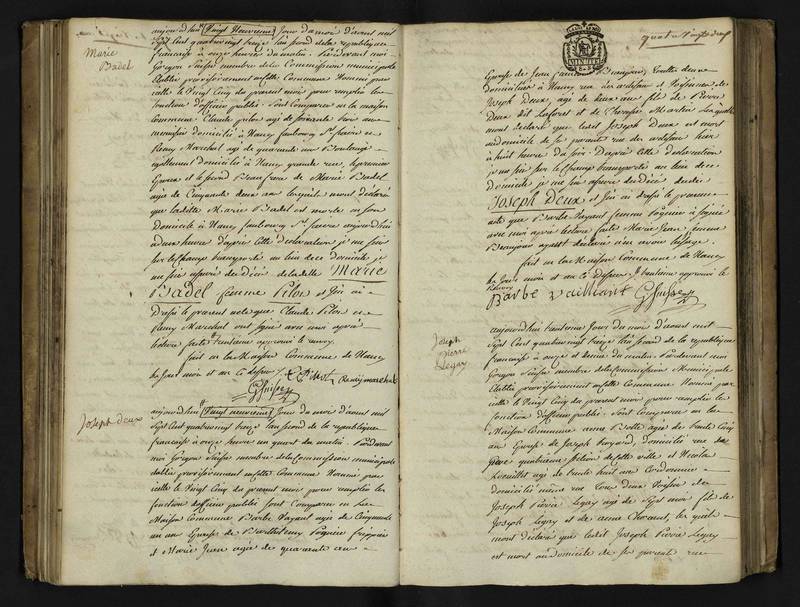 Marie
Badel
aujourd'hui Vingt neuvieme jour du mois d'aoust mil
sept Cent quatre vingt treize l'an second de la republique
française à onze heures du matin Pardevant moi
Gregoi Suisse membre de la Commission municipale
Etablie provisoirement en cette Commune Nommé par
icelle le Vingt Cinq du present mois pour remplir les
fonctions d'officier public. Sont Comparus en la maison
Commune Claude pilon agé de soixante trois ans
menuisier domicilié à Nancy faubourg St. pierre et
Remy Marechal agé de quarante un Boulangé
egallement domicilié à Nancy grande rue, le premier
Epoux et le second Beau frere de Marie Badel
agée de Cinquante deux ans lesquels m'ont declaré
que laditte Marie Badel est morte en son
domicile à Nancy faubourg St. pierre aujourd'hui
à deux heures d'après Cette declaration je me suis
sur le Champ transporté au lieu de ce domicile je
me suis assuré du décès de laditte Marie
Badel femme Pilon et j'en ai
Dressé le present acte que Claude Pilon et
Remy Marechal ont signé avec moi après
lecture faite
fait en la Maison Commune de Nancy
les jour mois et an ci dessus
C Pilon Remy marechal
GSuisse
Joseph deux
aujourd'hui Vingt neuvieme jour du mois d'aoust mil
sept Cent quatre vingt treize l'an second de la republique
française à onze heures un quart du matin. Pardevant
moi Gregoi Suisse membre de la Commission municipale
établie provisoirement en cette Commune Nommé par
icelle le Vingt Cinq du present mois pour remplir les
fonctions d'officier public sont Comparus en la
Maison Commune Barbe Vayant agée de Cinquante
un ans Epouse de Barthelemy Poignée frippier
et Marie Jean agée de quarante
quatre vingt
Epouse de Jean Beaujour toutes deux
domiciliées à Nancy rue des artisans et Voisines de
Joseph Deux, agé de deux ans fils de Pierre
Deux dit Laforet et de Therese Martin Lesquelles
m'ont declaré que ledit Joseph Deux est mort
au domicile de ses parents rue des artisans hier
à huit heures du soir. D'après Cette declaration
je me suis sur le Champ transporté au lieu de ce
Domicile, je me suis assuré du décès dudit
Joseph Deux et j'en ai dressé le present
acte que Barbe Vayant femme Poignée a signée
avec moi après lecture faite Marie Jean femme
Beaujour ayant declaré n'en avoir l'usage.
fait en la Maison Commune de Nancy
les jour mois et an ci dessus
Barbe vailliant GSuisse
Joseph
Pierre
Legay
aujourd'hui trentieme jour du mois d'aoust mil
sept Cent quatre vingt treize l'an second de la republique
française à onze et demie du matin. Pardevant moi
Gregoi Suisse membre de la Commission Municipale
Etablie provisoirement en cette Commune Nommé par
icelle le Vingt Cinq du present mois pour remplir les
fonctions d'officier public. Sont Comparus en la
Maison Commune anne agé de trente Cinq
ans Epouse de Joseph domicilié rue
quatrieme section de cette ville et Nicolas
agé de trente huit ans Cordonnier
domicilié même rue tous deux Voisins de
Joseph Pierre Legay agé de sept mois fils de
Joseph Legay et de anne lesquels
m'ont declaré que ledit Joseph Pierre Legay
est mort au domicile de ses parents rue